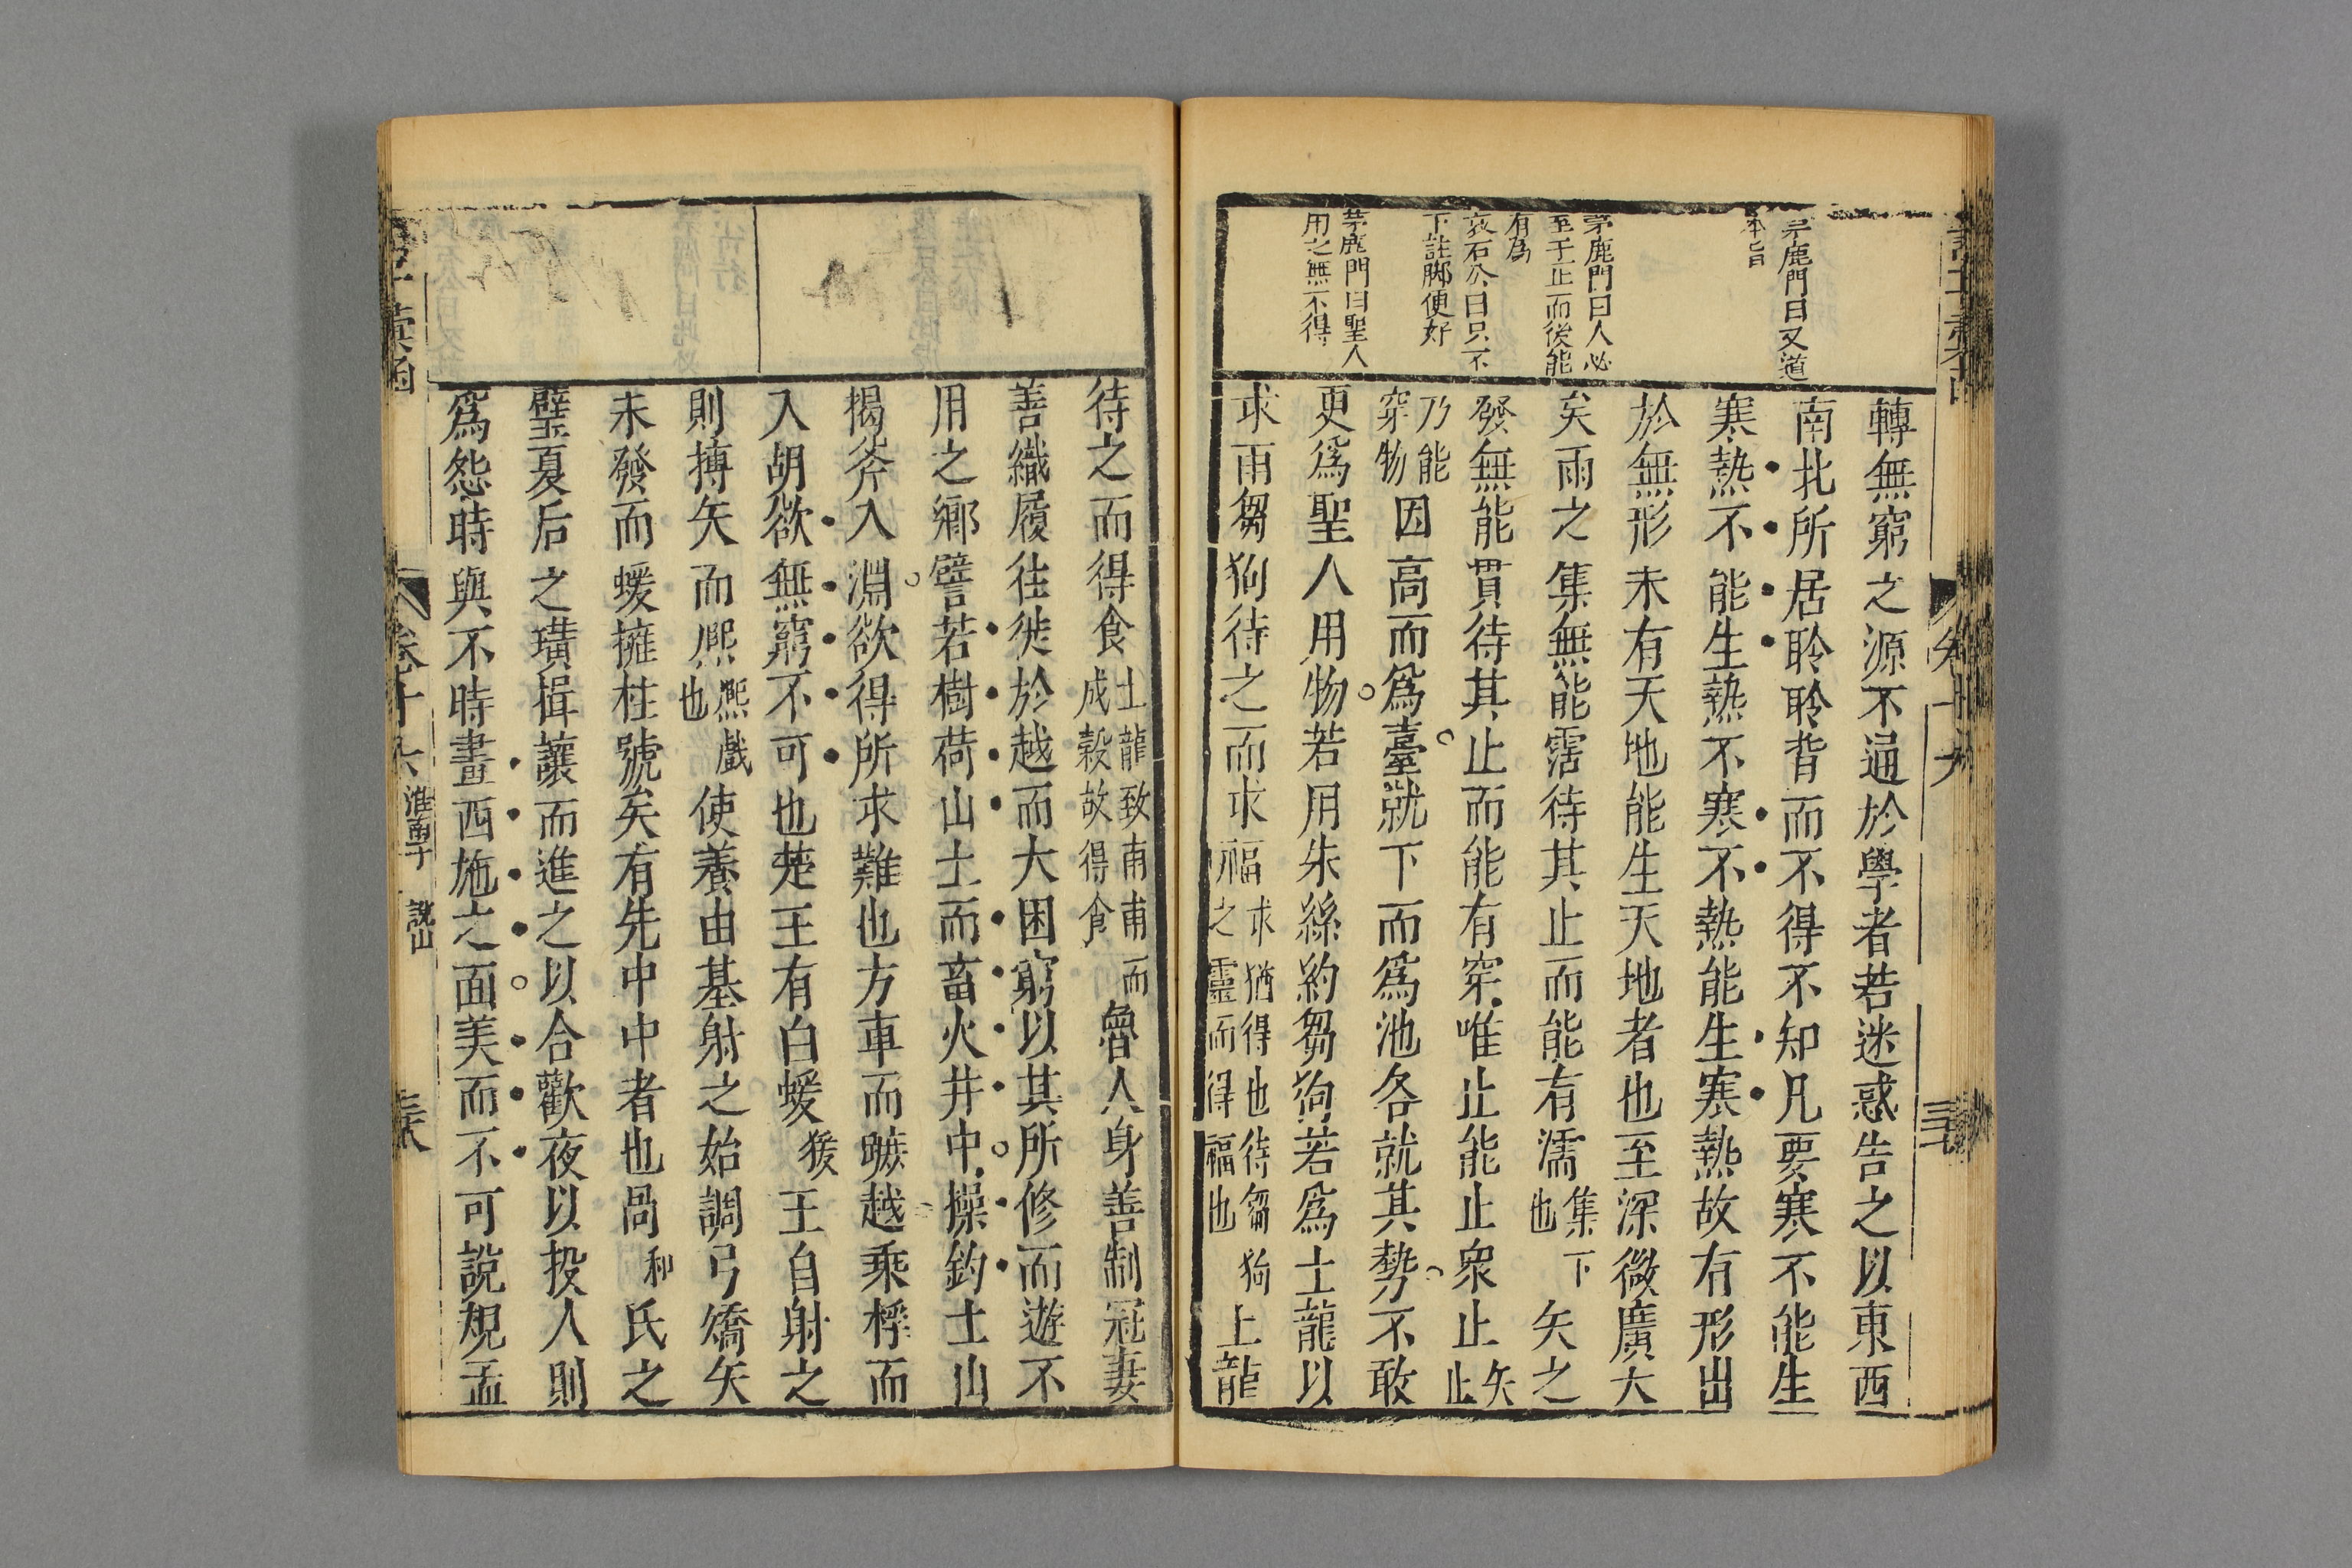 茅鹿門曰又道
本旨
茅鹿門曰人必
至于止而後能
有爲
袁石公曰只不
下註脚便好
茅鹿門曰聖人
用之無不得
轉無窮之源不通於學者若迷惑告之以東西
南北所居聆聆背而不得不知凡要寒不能生
寒熱不能生熱不寒不熱能生寒熱故有形出
於無形未有天地能生天地者也至深微廣大
矣雨之集無能霑待其止而能有濡集下也矢之
發無能貫待其止而能有穿唯止能止衆止矢止
乃能穿物因高而爲臺就下而爲池各就其勢不敢
更爲聖人用物若用朱絲約芻狗若爲土龍以
求雨芻狗待之而求福求猶得也待芻狗之靈而得福也土龍
待之而得食土龍致雨雨而成穀故得食魯人身善制冠妻
善織履往徙於越而大困窮以其所修而遊不
用之鄉譬若樹荷山上而畜火井中操釣上山
揭斧入淵欲得所求難也方車而蹶越乘桴而
入胡欲無窮不可也楚王有白蝯猨王自射之
則搏矢而熈熈戲也使養由基射之始調弓矯矢
未發而蝯擁柱號矣有先中中者也咼和氏之
璧夏后之璜揖讓而進之以合歡夜以投人則
爲怨時與不時畫西施之面美而不可說規孟
卷十六
淮南子
說山